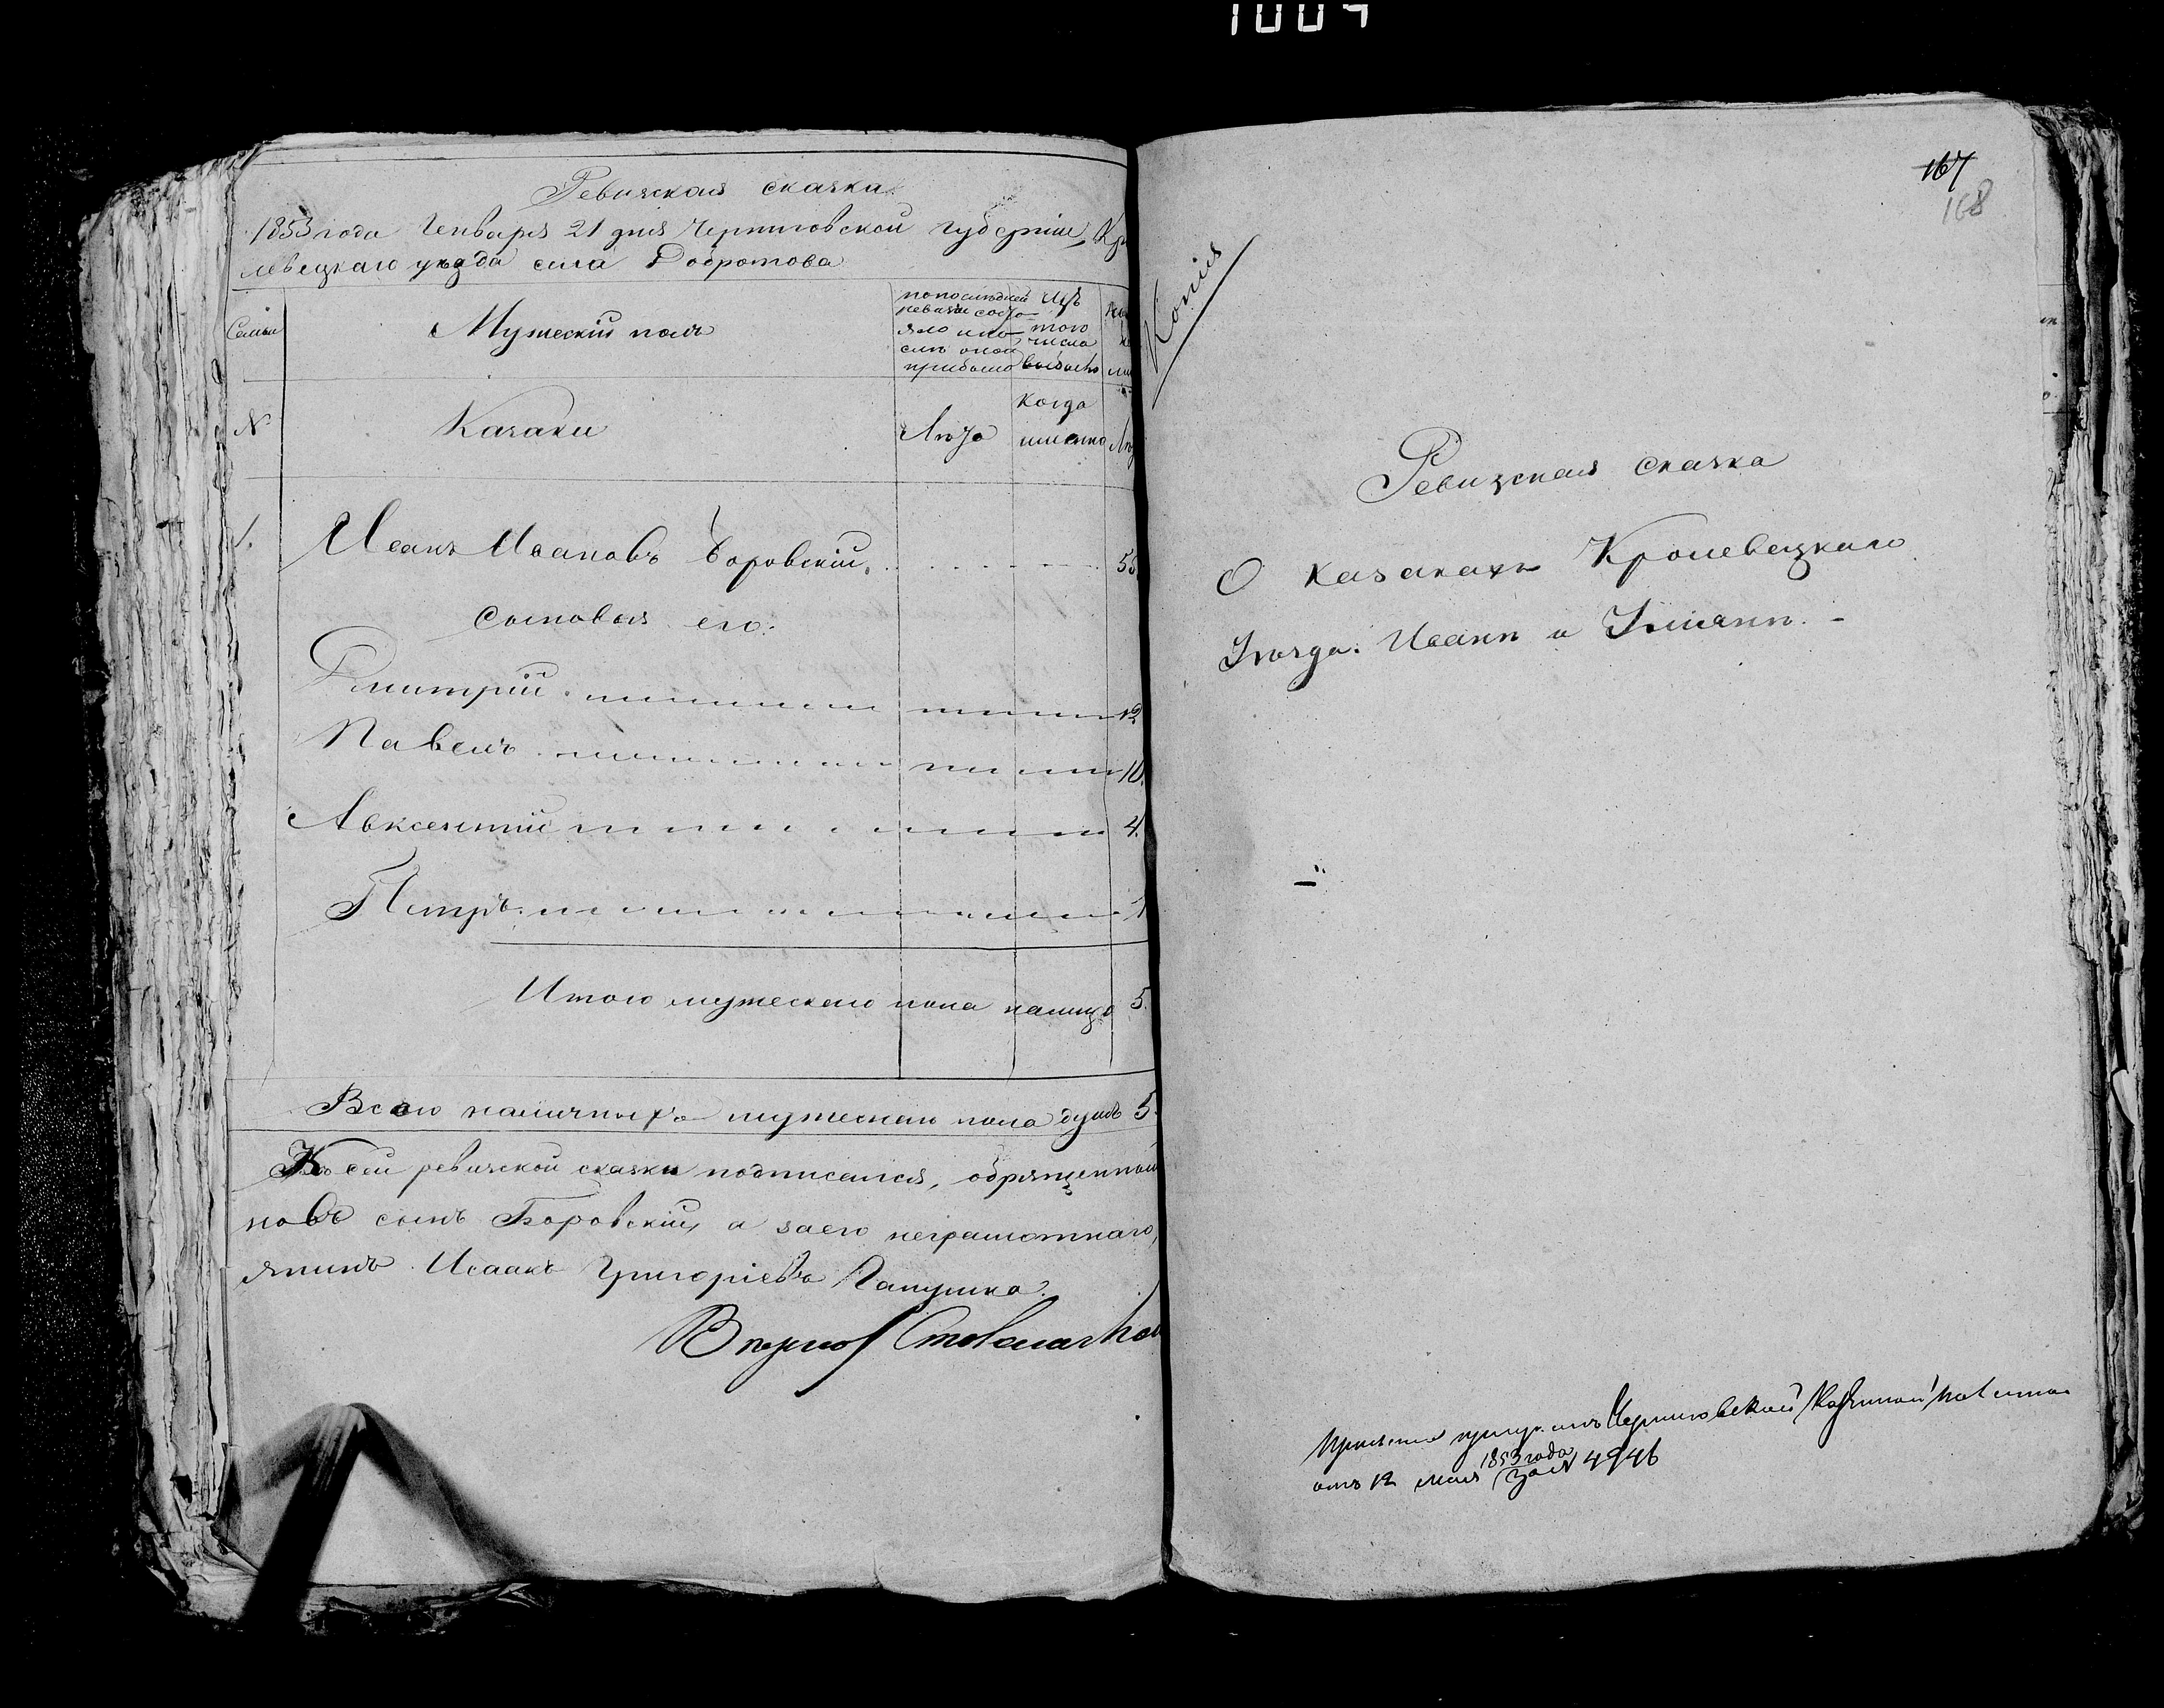 1004
Ревизская сказка
1853 года Генваря 21 дня Черниговской губерніи, Кро
левецкаго уѣзда села Добротова
Семьи
Мужескій полъ
по последней
ревизіи состо
яло и по
слѣ оной
прибыло
Изъ
того
числа
выбыло
№
Казаки
Лѣта
Когда
именно
1.
Иванъ Ивановъ Боровскій
55
сыновья его:
Дмитрій
12
Павелъ
10.
Авксентій
4.
Петръ
1
Итого мужеска пола налицо 5.
Всего наличныхъ мужеска пола душъ 5.
Къ сей ревизской сказки подписался,
новъ сынъ Боровскій, а за его неграмотнаго,
янинъ Исаакъ Григоріевъ Гапушка.
Вѣрно
167
168
Копія
Ревизская сказка
О казакахъ Кролевецкаго
Уѣзда: Иванѣ и
отъ Черниговской Казенной Палаты
отъ 12 мая 1853 года за № 4946